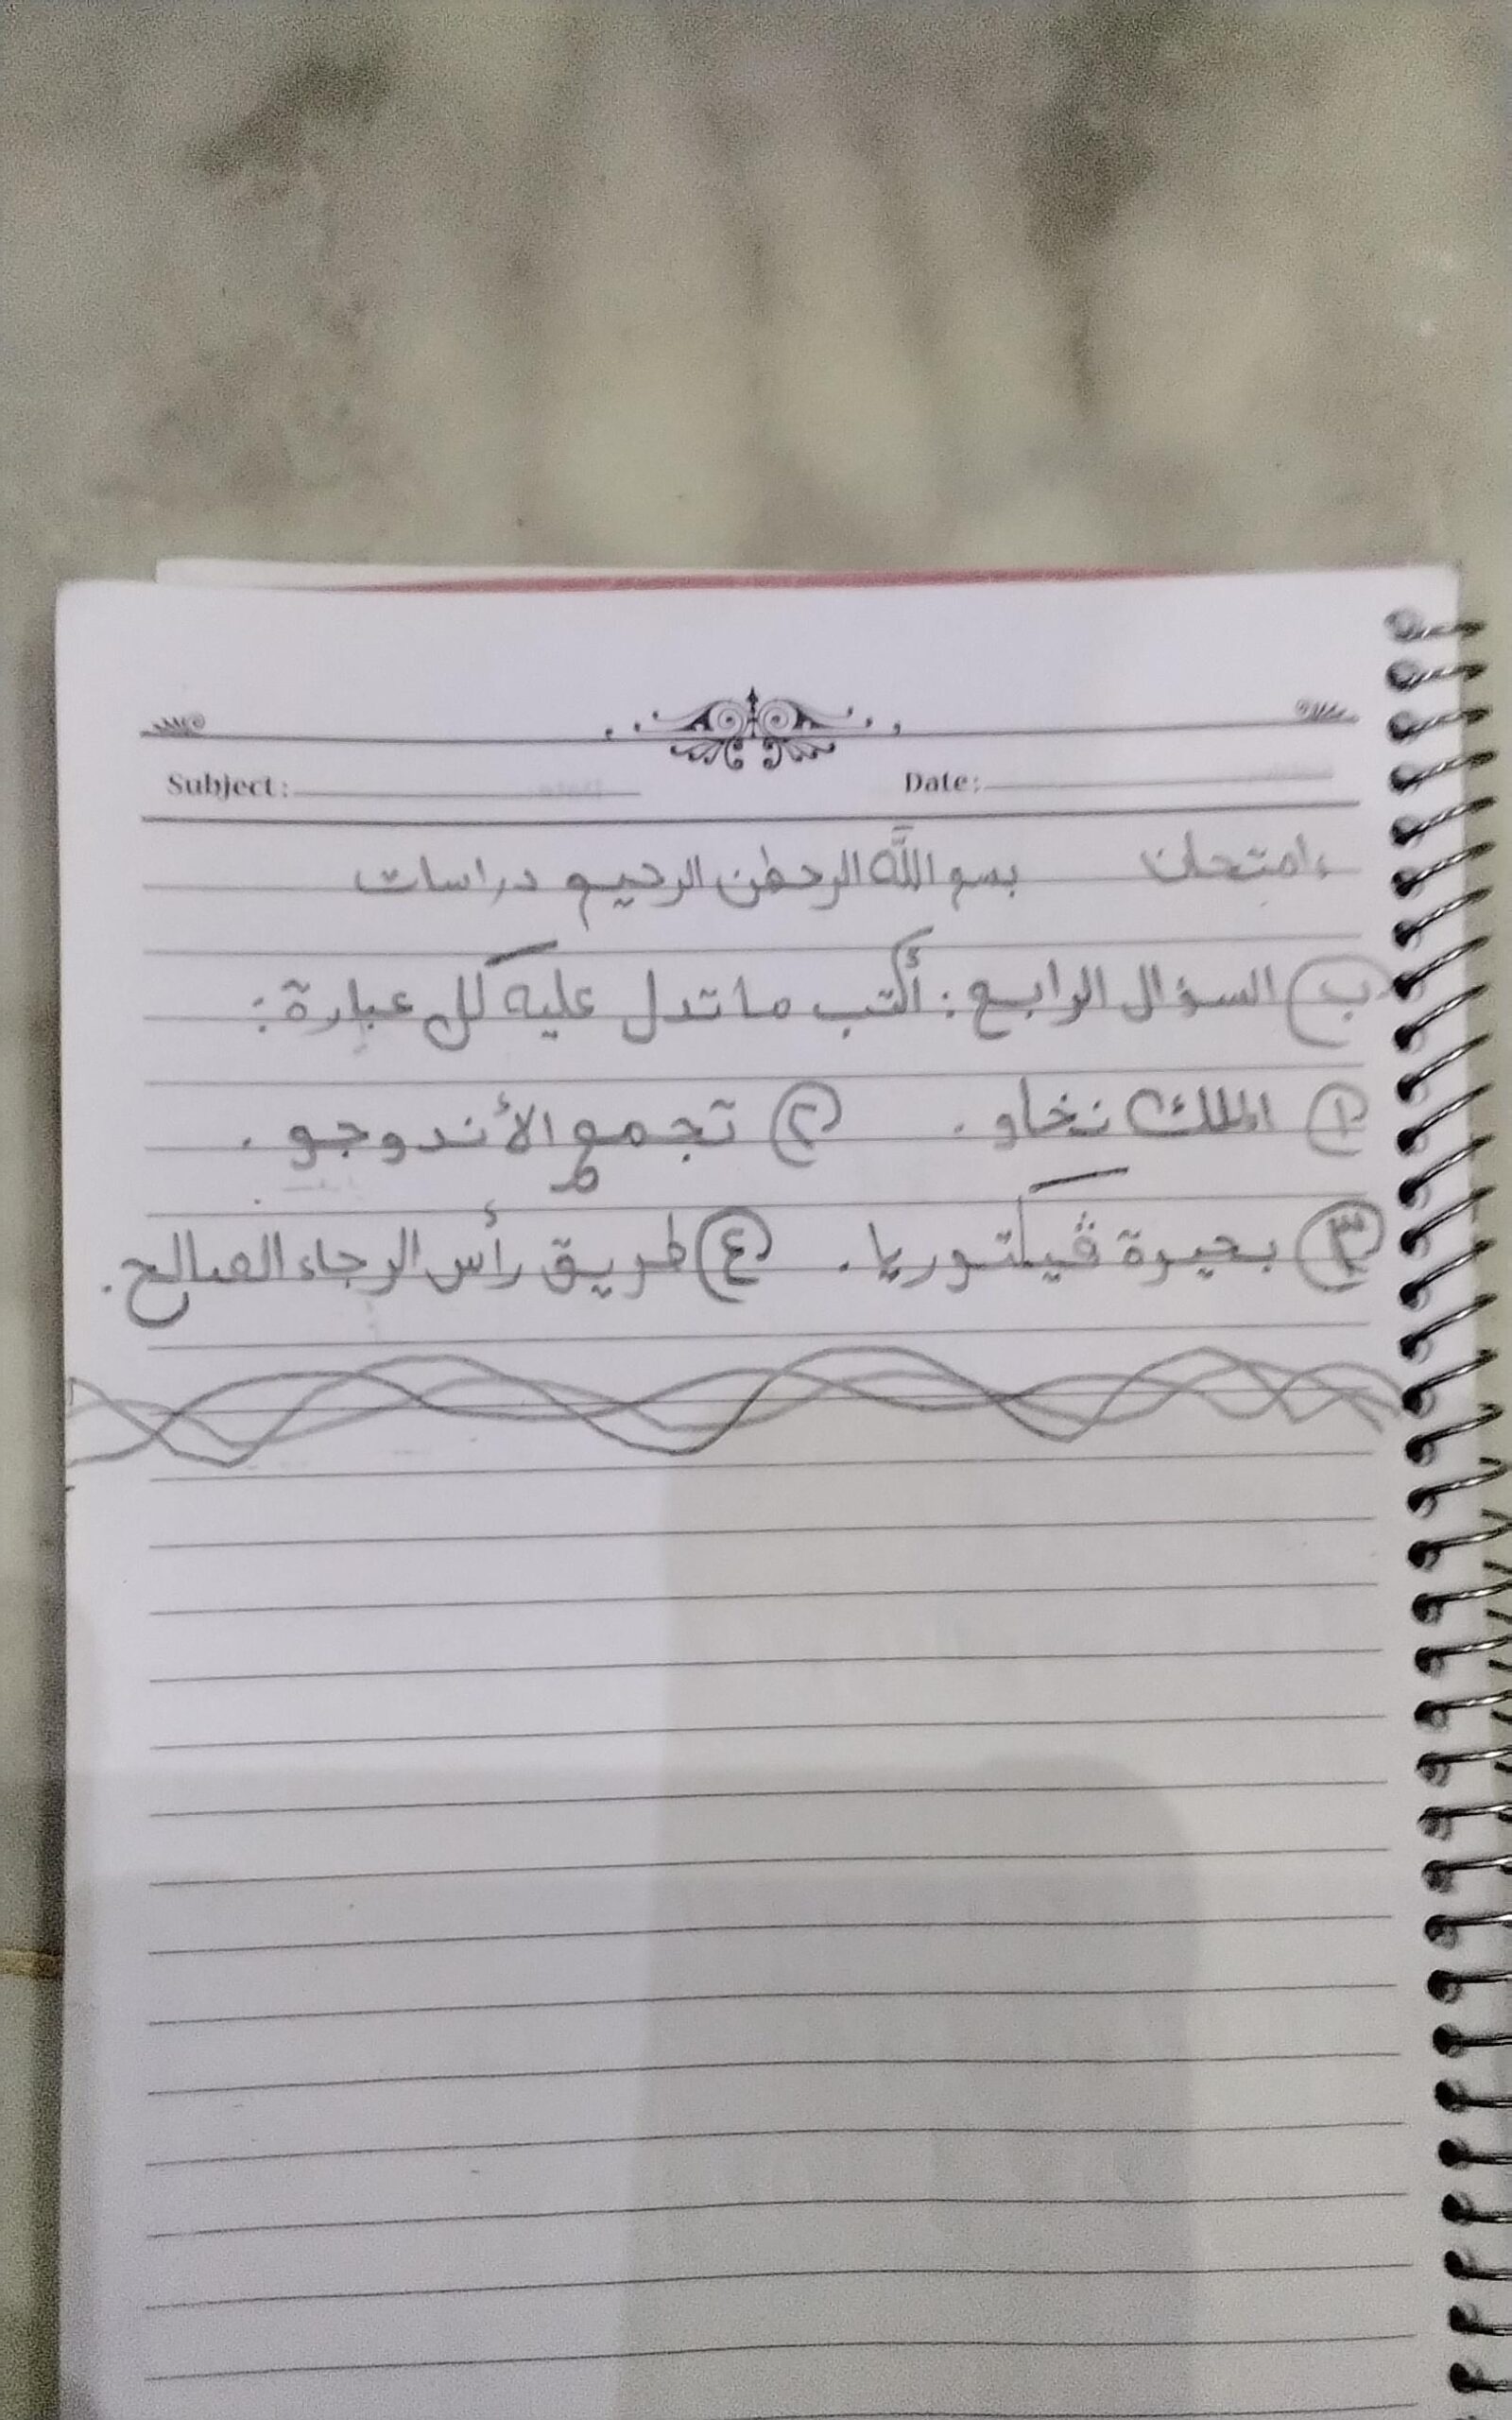 Subject: Date:
امتحان بسم الله الرحمٰن الرحيم دراسات
ب) السؤال الرابع: أكتب ما تدل عليه كل عبارة:
① الملك نخاو. ② تجمع الأندوجو.
③ بحيرة ڤيكتوريا. ④ طريق رأس الرجاء الصالح.